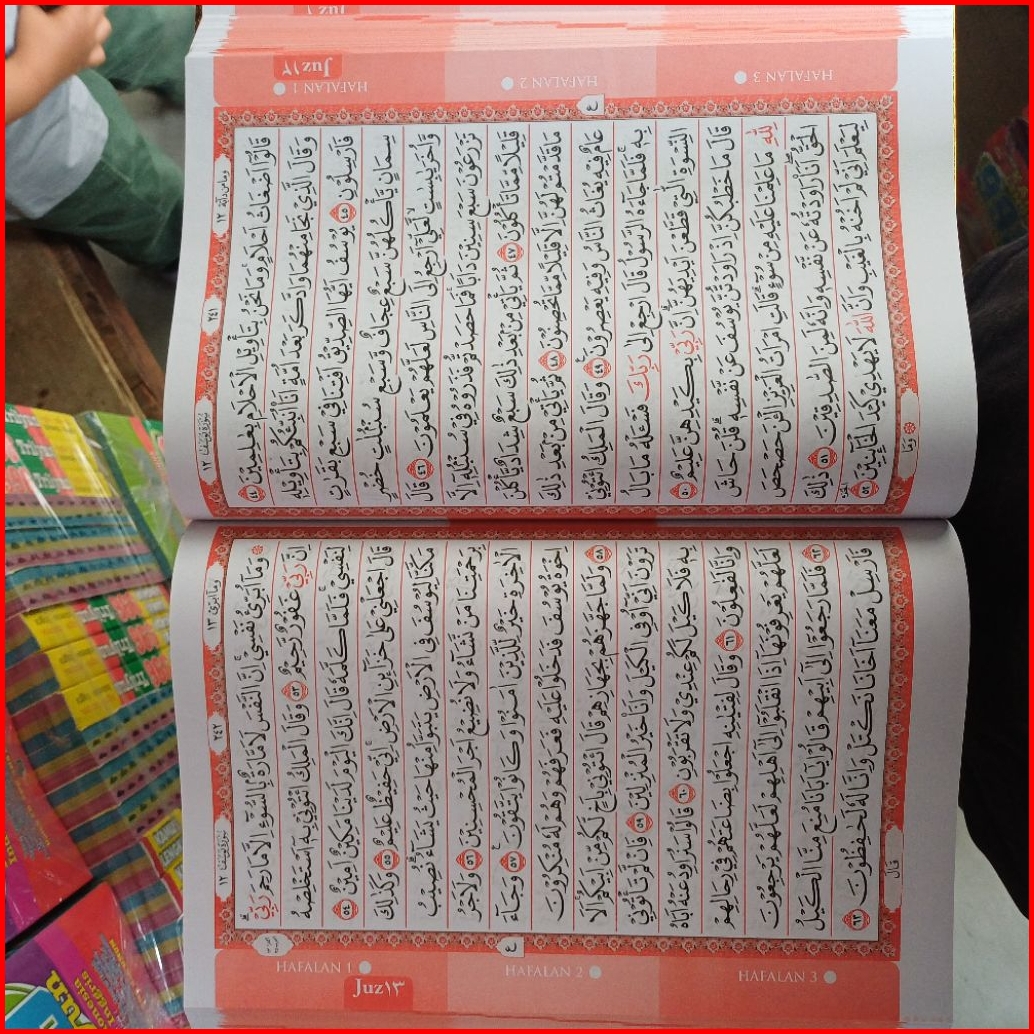 Juz ١٢
HAFALAN 3
HAFALAN 2
HAFALAN 1
وما من دآبة ١٢
٢٤١
سورة يوسف ١٢
قَالُوْٓا اَضْغَاثُ اَحْلَامٍ وَمَا نَحْنُ بِتَأْوِيْلِ الْاَحْلَامِ بِعٰلِمِيْنَ ٤٤
وَقَالَ الَّذِيْ نَجَا مِنْهُمَا وَادَّكَرَ بَعْدَ اُمَّةٍ اَنَا۠ اُنَبِّئُكُمْ بِتَأْوِيْلِهٖ
فَاَرْسِلُوْنِ ٤٥ يُوْسُفُ اَيُّهَا الصِّدِّيْقُ اَفْتِنَا فِيْ سَبْعِ بَقَرٰتٍ
سِمَانٍ يَّأْكُلُهُنَّ سَبْعٌ عِجَافٌ وَّسَبْعِ سُنْۢبُلٰتٍ خُضْرٍ
وَّاُخَرَ يٰبِسٰتٍ لَّعَلِّيْٓ اَرْجِعُ اِلَى النَّاسِ لَعَلَّهُمْ يَعْلَمُوْنَ ٤٦ قَالَ
تَزْرَعُوْنَ سَبْعَ سِنِيْنَ دَاَبًا فَمَا حَصَدْتُّمْ فَذَرُوْهُ فِيْ سُنْۢبُلِهٖٓ اِلَّا
قَلِيْلًا مِّمَّا تَأْكُلُوْنَ ٤٧ ثُمَّ يَأْتِيْ مِنْۢ بَعْدِ ذٰلِكَ سَبْعٌ شِدَادٌ يَّأْكُلْنَ
مَا قَدَّمْتُمْ لَهُنَّ اِلَّا قَلِيْلًا مِّمَّا تُحْصِنُوْنَ ٤٨ ثُمَّ يَأْتِيْ مِنْۢ بَعْدِ ذٰلِكَ
عَامٌ فِيْهِ يُغَاثُ النَّاسُ وَفِيْهِ يَعْصِرُوْنَ ٤٩ وَقَالَ الْمَلِكُ ائْتُوْنِيْ
بِهٖۚ فَلَمَّا جَاۤءَهُ الرَّسُوْلُ قَالَ ارْجِعْ اِلٰى رَبِّكَ فَسْـَٔلْهُ مَا بَالُ
النِّسْوَةِ الّٰتِيْ قَطَّعْنَ اَيْدِيَهُنَّۗ اِنَّ رَبِّيْ بِكَيْدِهِنَّ عَلِيْمٌ ٥٠
قَالَ مَا خَطْبُكُنَّ اِذْ رَاوَدْتُّنَّ يُوْسُفَ عَنْ نَّفْسِهٖۗ قُلْنَ حَاشَ
لِلّٰهِ مَا عَلِمْنَا عَلَيْهِ مِنْ سُوْۤءٍۗ قَالَتِ امْرَاَتُ الْعَزِيْزِ الْـٰٔنَ حَصْحَصَ
الْحَقُّۖ اَنَا۠ رَاوَدْتُّهٗ عَنْ نَّفْسِهٖ وَاِنَّهٗ لَمِنَ الصّٰدِقِيْنَ ٥١ ذٰلِكَ
لِيَعْلَمَ اَنِّيْ لَمْ اَخُنْهُ بِالْغَيْبِ وَاَنَّ اللّٰهَ لَا يَهْدِيْ كَيْدَ الْخَاۤىِٕنِيْنَ ٥٢
وَمَا
ع
وما ابرئ ١٣
٢٤٢
سورة يوسف ١٢
۞ وَمَآ اُبَرِّئُ نَفْسِيْۚ اِنَّ النَّفْسَ لَاَمَّارَةٌۢ بِالسُّوْۤءِ اِلَّا مَا رَحِمَ رَبِّيْۗ
اِنَّ رَبِّيْ غَفُوْرٌ رَّحِيْمٌ ٥٣ وَقَالَ الْمَلِكُ ائْتُوْنِيْ بِهٖٓ اَسْتَخْلِصْهُ
لِنَفْسِيْۚ فَلَمَّا كَلَّمَهٗ قَالَ اِنَّكَ الْيَوْمَ لَدَيْنَا مَكِيْنٌ اَمِيْنٌ ٥٤
قَالَ اجْعَلْنِيْ عَلٰى خَزَاۤىِٕنِ الْاَرْضِۚ اِنِّيْ حَفِيْظٌ عَلِيْمٌ ٥٥ وَكَذٰلِكَ
مَكَّنَّا لِيُوْسُفَ فِى الْاَرْضِ يَتَبَوَّاُ مِنْهَا حَيْثُ يَشَاۤءُۗ نُصِيْبُ
بِرَحْمَتِنَا مَنْ نَّشَاۤءُ وَلَا نُضِيْعُ اَجْرَ الْمُحْسِنِيْنَ ٥٦ وَلَاَجْرُ
الْاٰخِرَةِ خَيْرٌ لِّلَّذِيْنَ اٰمَنُوْا وَكَانُوْا يَتَّقُوْنَ ٥٧ وَجَاۤءَ
اِخْوَةُ يُوْسُفَ فَدَخَلُوْا عَلَيْهِ فَعَرَفَهُمْ وَهُمْ لَهٗ مُنْكِرُوْنَ
٥٨ وَلَمَّا جَهَّزَهُمْ بِجَهَازِهِمْ قَالَ ائْتُوْنِيْ بِاَخٍ لَّكُمْ مِّنْ اَبِيْكُمْۚ اَلَا
تَرَوْنَ اَنِّيْٓ اُوْفِى الْكَيْلَ وَاَنَا۠ خَيْرُ الْمُنْزِلِيْنَ ٥٩ فَاِنْ لَّمْ تَأْتُوْنِيْ
بِهٖ فَلَا كَيْلَ لَكُمْ عِنْدِيْ وَلَا تَقْرَبُوْنِ ٦٠ قَالُوْا سَنُرَاوِدُ عَنْهُ اَبَاهُ
وَاِنَّا لَفٰعِلُوْنَ ٦١ وَقَالَ لِفِتْيٰنِهِ اجْعَلُوْا بِضَاعَتَهُمْ فِيْ رِحَالِهِمْ
لَعَلَّهُمْ يَعْرِفُوْنَهَآ اِذَا انْقَلَبُوْٓا اِلٰٓى اَهْلِهِمْ لَعَلَّهُمْ يَرْجِعُوْنَ
٦٢ فَلَمَّا رَجَعُوْٓا اِلٰٓى اَبِيْهِمْ قَالُوْا يٰٓاَبَانَا مُنِعَ مِنَّا الْكَيْلُ
فَاَرْسِلْ مَعَنَآ اَخَانَا نَكْتَلْ وَاِنَّا لَهٗ لَحٰفِظُوْنَ ٦٣
قَالَ
ع
HAFALAN 1
HAFALAN 2
HAFALAN 3
Juz ١٣